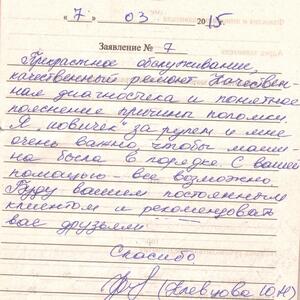 « 7 » 03 2015
Заявление № 7
Прекрасное обслуживание,
качественный ремонт. Качествен-
ная диагностика и понятное
пояснение причины поломки.
Я "новичек" за рулем и мне
очень важно, чтобы маши-
на была в порядке. С вашей
помощью - все возможно.
Буду вашим постоянным
клиентом и рекомендовать
вас друзьям.
Спасибо